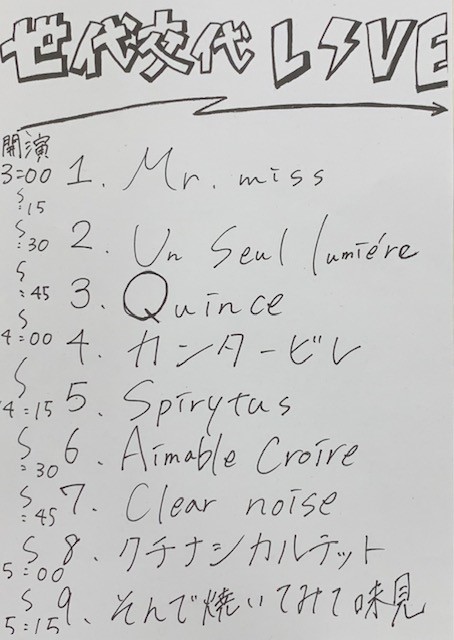 世代交代 LIVE
開演
3:00 1. Mr. miss
〜:15
〜:30 2. Un Seul lumiére
〜:45 3. Quince
〜4:00 4. カンタービレ
〜4:15 5. Spirytus
〜:30 6. Aimable Croire
〜:45 7. Clear noise
〜5:00 8. クチナシカルテット
〜5:15 9. そんで焼いてみて味見